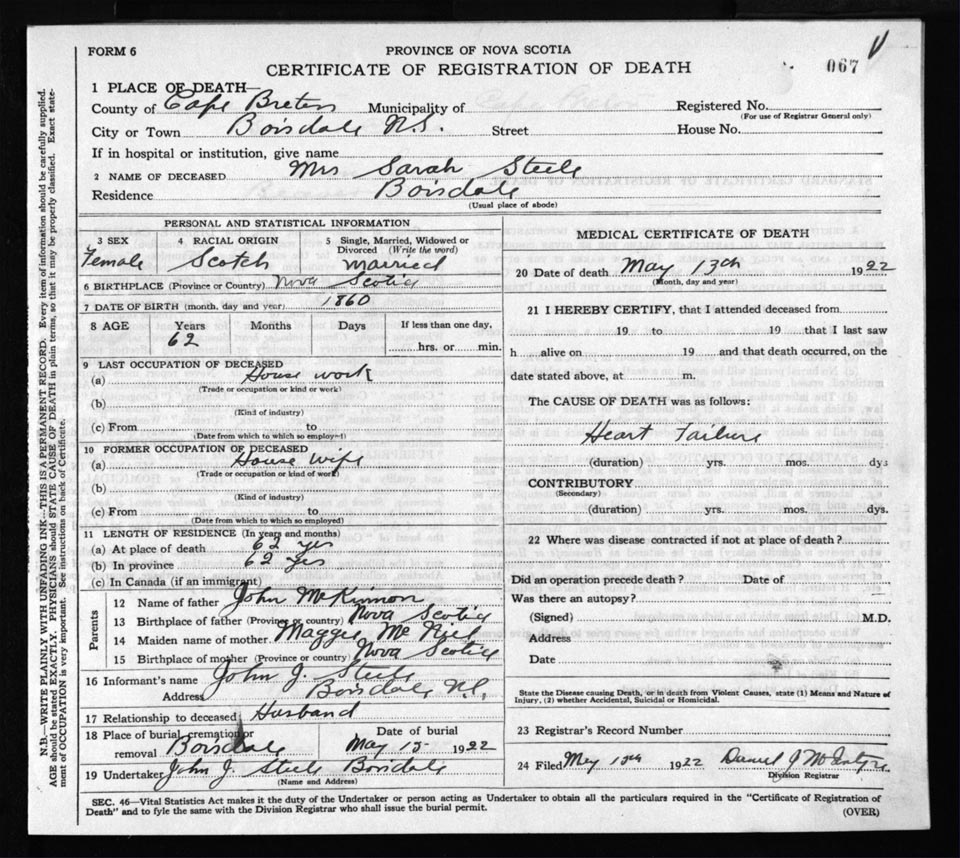 FORM 6
PROVINCE OF NOVA SCOTIA
CERTIFICATE OF REGISTRATION OF DEATH
067
1 PLACE OF DEATH—
County of Cape Breton Municipality of Registered No.
(For use of Registrar General only)
City or Town Boisdale N.S. Street House No.
If in hospital or institution, give name
2 NAME OF DECEASED Mrs Sarah Steele
Residence Boisdale
(Usual place of abode)
PERSONAL AND STATISTICAL INFORMATION
3 SEX 4 RACIAL ORIGIN 5 Single, Married, Widowed or Divorced (Write the word)
Female Scotch married
6 BIRTHPLACE (Province or Country) Nova Scotia
7 DATE OF BIRTH (month, day and year) 1860
8 AGE Years Months Days If less than one day,
62 hrs. or min.
9 LAST OCCUPATION OF DECEASED
(a) House work
(Trade or occupation or kind or work)
(b)
(Kind of industry)
(c) From to
(Date from which to which so employed)
10 FORMER OCCUPATION OF DECEASED
(a) House wife
(Trade or occupation or kind of work)
(b)
(Kind of industry)
(c) From to
(Date from which to which so employed)
11 LENGTH OF RESIDENCE (In years and months)
(a) At place of death 62 yrs
(b) In province 62 yrs
(c) In Canada (if an immigrant)
Parents
12 Name of father John McKinnon
13 Birthplace of father (Province or country) Nova Scotia
14 Maiden name of mother Maggie McNeil
15 Birthplace of mother (Province or country) Nova Scotia
16 Informant's name John J. Steele
Address Boisdale N.S.
17 Relationship to deceased Husband
18 Place of burial, cremation or Date of burial
removal Boisdale May 15 1922
19 Undertaker John J Steele Boisdale
(Name and Address)
MEDICAL CERTIFICATE OF DEATH
20 Date of death May 13th 1922
(Month, day and year)
21 I HEREBY CERTIFY, that I attended deceased from
19 to 19 that I last saw
h alive on 19 and that death occurred, on the
date stated above, at m.
The CAUSE OF DEATH was as follows:
Heart Failure
(duration) yrs. mos. dys
CONTRIBUTORY
(Secondary)
(duration) yrs. mos. dys.
22 Where was disease contracted if not at place of death?
Did an operation precede death? Date of
Was there an autopsy?
(Signed) M.D.
Address
Date
State the Disease causing Death, or in death from Violent Causes, state (1) Means and Nature of
Injury, (2) whether Accidental, Suicidal or Homicidal.
23 Registrar's Record Number
24 Filed May 15th 1922 Daniel J McIntyre
Division Registrar
SEC. 46—Vital Statistics Act makes it the duty of the Undertaker or person acting as Undertaker to obtain all the particulars required in the "Certificate of Registration of
Death" and to fyle the same with the Division Registrar who shall issue the burial permit.
(OVER)
N.B.—WRITE PLAINLY WITH UNFADING INK—THIS IS A PERMANENT RECORD. Every item of information should be carefully supplied.
AGE should be stated EXACTLY. PHYSICIANS should STATE CAUSE OF DEATH in plain terms, so that it may be properly classified. Exact state-
ment of OCCUPATION is very important. See instructions on back of Certificate.